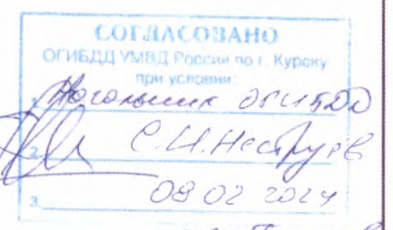 СОГЛАСОВАНО
ОГИБДД УМВД России по г. Курску
при условии:
1. Начальник ОГИБДД
2. С.И. Неструев
3. 08 02 2024